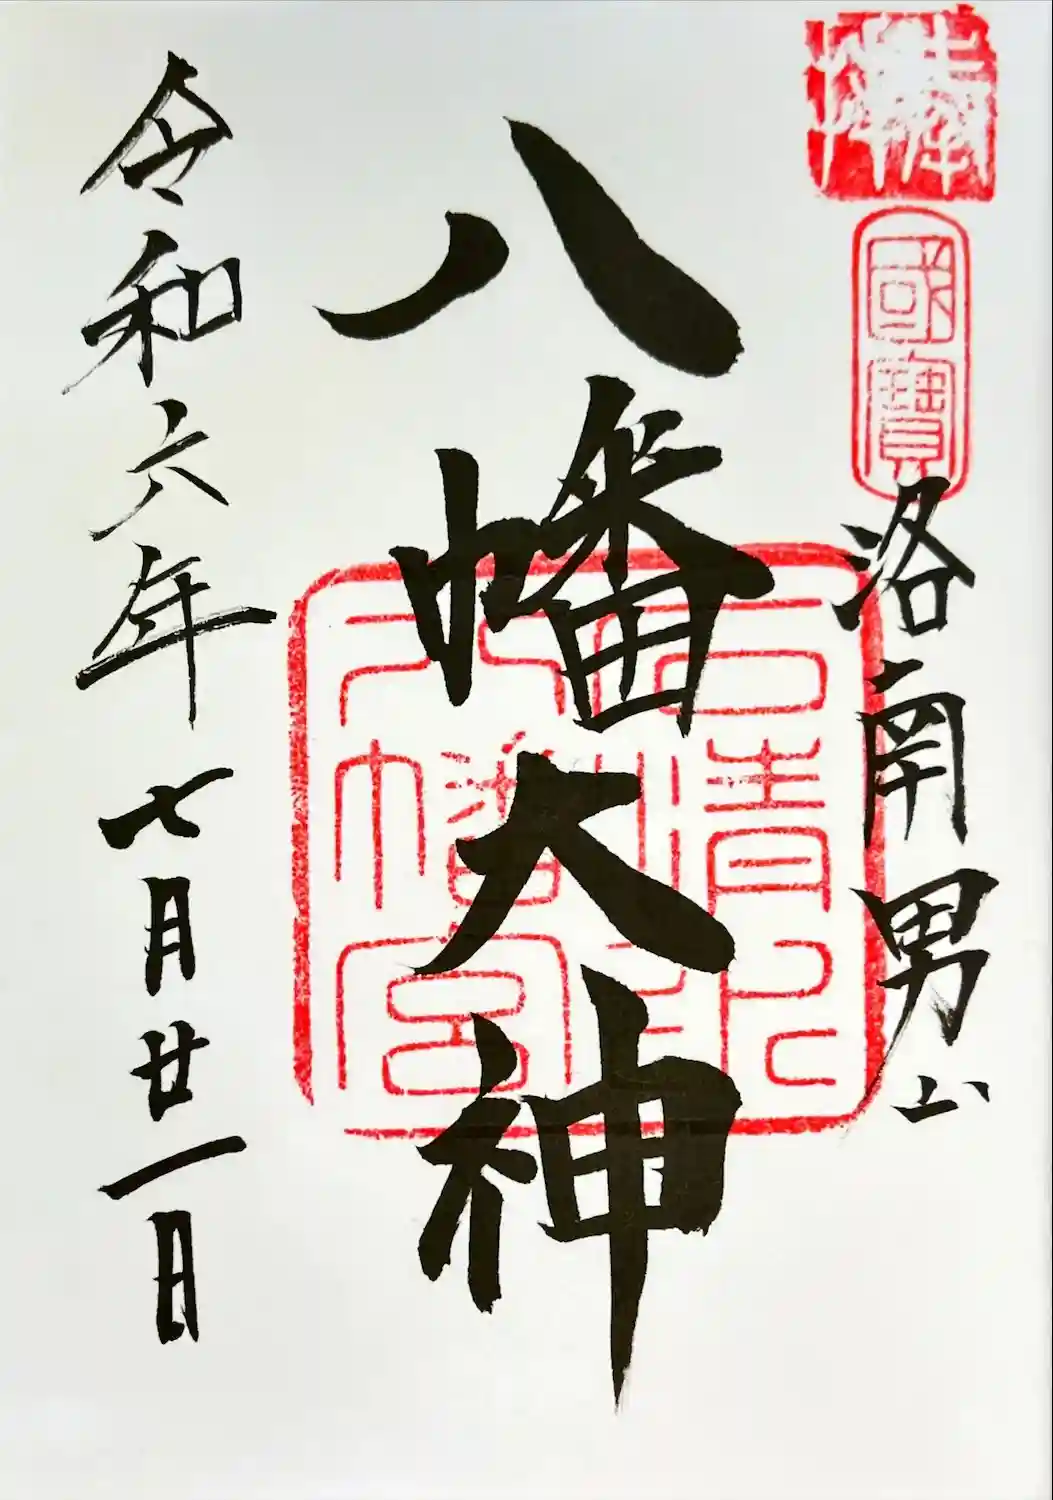 奉拝
國寶
洛南男山
八幡大神
石清水八幡宮
令和六年七月廿一日